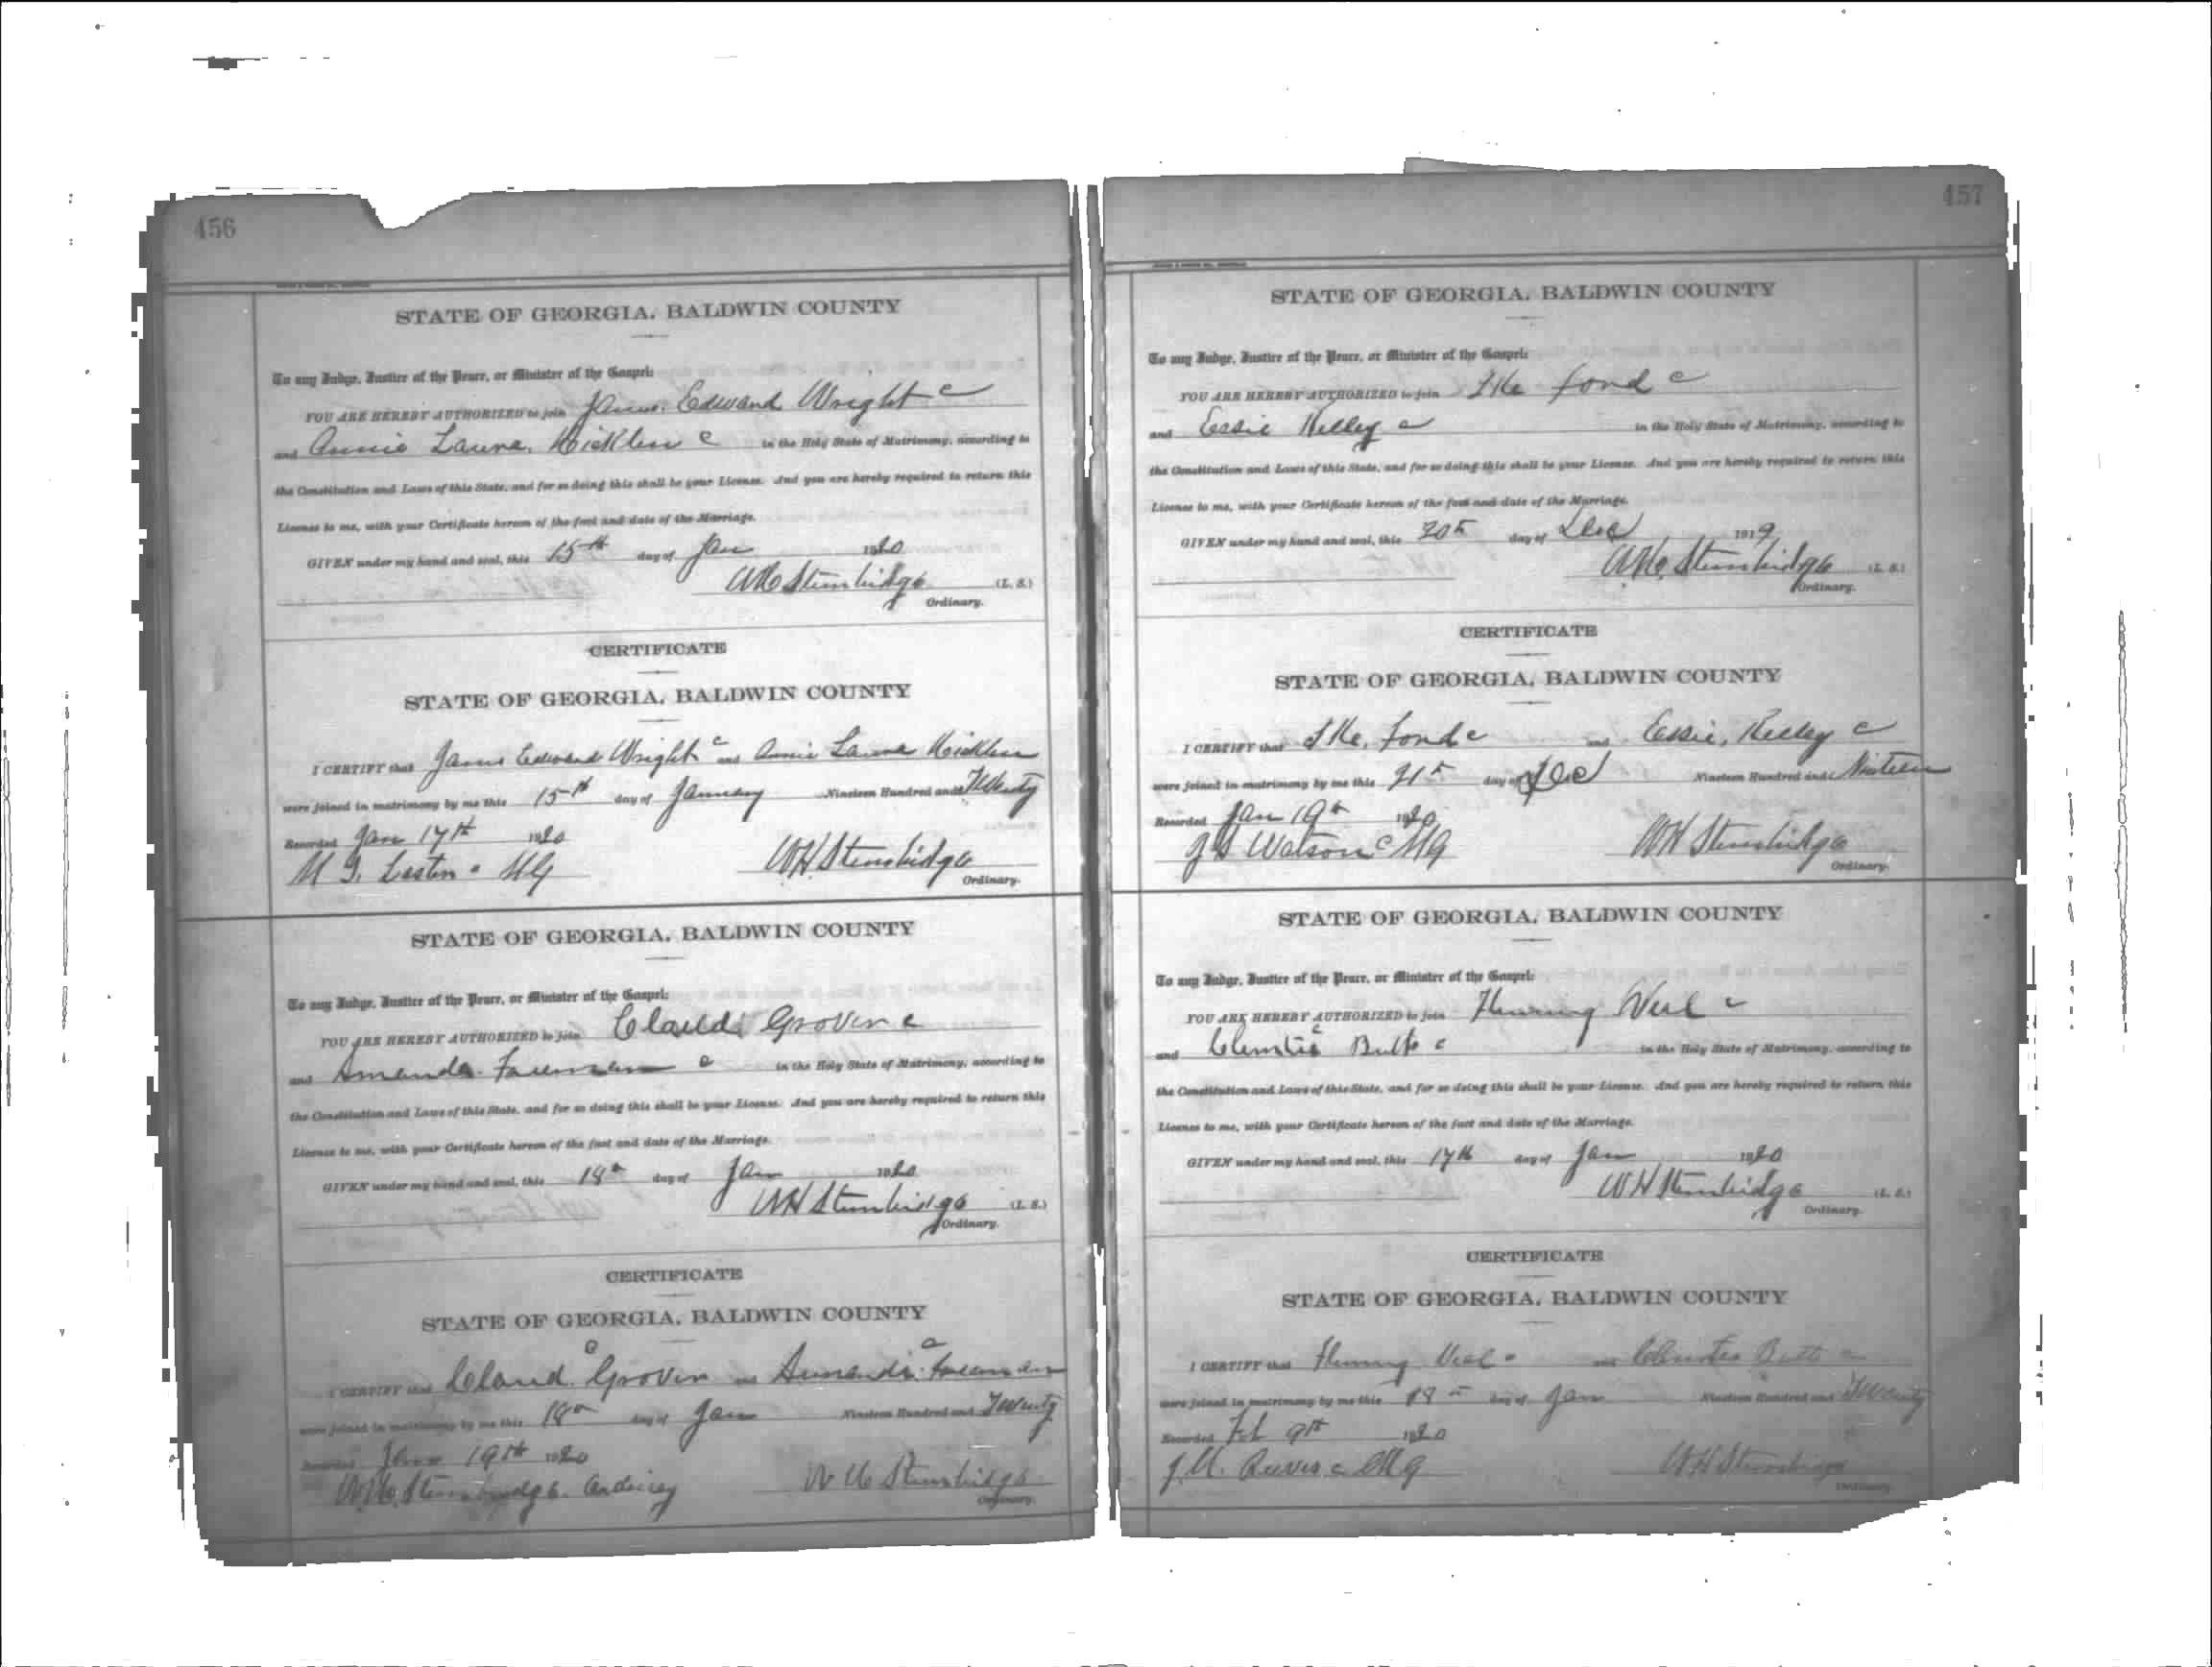 456
STATE OF GEORGIA, BALDWIN COUNTY
To any Judge, Justice of the Peace, or Minister of the Gospel:
YOU ARE HEREBY AUTHORIZED to join James Edward Wright c
and Annie Laura c in the Holy State of Matrimony, according to
the Constitution and Laws of this State, and for so doing this shall be your License. And you are hereby required to return this
License to me, with your Certificate hereon of the fact and date of the Marriage.
GIVEN under my hand and seal, this 15th day of Jan 1920
WH Stembridge (L. S.)
Ordinary.
CERTIFICATE
STATE OF GEORGIA, BALDWIN COUNTY
I CERTIFY that James Edward Wright c and Annie Laura
were joined in matrimony by me this 15th day of January Nineteen Hundred and Twenty
Recorded Jan 17th 1920
MG WH Stembridge
Ordinary.
STATE OF GEORGIA, BALDWIN COUNTY
To any Judge, Justice of the Peace, or Minister of the Gospel:
YOU ARE HEREBY AUTHORIZED to join Claud Grover c
and Amanda c in the Holy State of Matrimony, according to
the Constitution and Laws of this State, and for so doing this shall be your License. And you are hereby required to return this
License to me, with your Certificate hereon of the fact and date of the Marriage.
GIVEN under my hand and seal, this 18th day of Jan 1920
WH Stembridge (L. S.)
Ordinary.
CERTIFICATE
STATE OF GEORGIA, BALDWIN COUNTY
I CERTIFY that Claud c Grover and Amanda c Freeman
were joined in matrimony by me this 18th day of Jan Nineteen Hundred and Twenty
Recorded Jan 19th 1920
W.H. Stembridge Ordinary WH Stembridge
Ordinary.
457
STATE OF GEORGIA, BALDWIN COUNTY
To any Judge, Justice of the Peace, or Minister of the Gospel:
YOU ARE HEREBY AUTHORIZED to join Ike Ford c
and Essie Kelley c in the Holy State of Matrimony, according to
the Constitution and Laws of this State, and for so doing this shall be your License. And you are hereby required to return this
License to me, with your Certificate hereon of the fact and date of the Marriage.
GIVEN under my hand and seal, this 20th day of Dec 1919
WH Stembridge (L. S.)
Ordinary.
CERTIFICATE
STATE OF GEORGIA, BALDWIN COUNTY
I CERTIFY that Ike Ford c and Essie Kelley c
were joined in matrimony by me this 21st day of Dec Nineteen Hundred and Ninteen
Recorded Jan 19th 1920
J S Watson c MG WH Stembridge
Ordinary.
STATE OF GEORGIA, BALDWIN COUNTY
To any Judge, Justice of the Peace, or Minister of the Gospel:
YOU ARE HEREBY AUTHORIZED to join Fleming Veal c
and Butts c in the Holy State of Matrimony, according to
the Constitution and Laws of this State, and for so doing this shall be your License. And you are hereby required to return this
License to me, with your Certificate hereon of the fact and date of the Marriage.
GIVEN under my hand and seal, this 17th day of Jan 1920
WH Stembridge (L. S.)
Ordinary.
CERTIFICATE
STATE OF GEORGIA, BALDWIN COUNTY
I CERTIFY that Fleming Veal c and Butts c
were joined in matrimony by me this 18th day of Jan Nineteen Hundred and Twenty
Recorded Feb 9th 1920
J.M. Reeves c MG WH Stembridge
Ordinary.